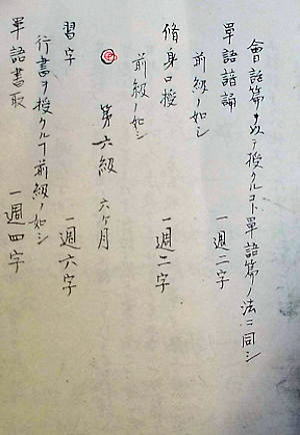 會話篇ヲ以テ授クルコト單語篇ノ法ニ同シ
單語諳誦 一週二字
前級ノ如シ
脩身口授 一週二字
前級ノ如シ
第六級 六ケ月
習字 一週六字
行書ヲ授クルヿ前級ノ如シ
單語書取 一週四字